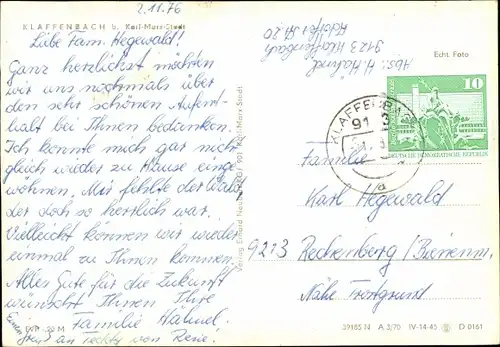 2.11.76
KLAFFENBACH b. Karl-Marx-Stadt
Lübe Fam. Hegewald!
Ganz herzlichst möchten
wir uns nochmals über
den sehr schönen Aufent-
halt bei Ihnen bedanken.
Ich konnte mich gar nicht
gleich wieder zu Hause einge-
wöhnen. Mir fehlte der Wald
der doch so herrlich war.
Vielleicht können wir wieder
einmal zu Ihnen kommen.
Alles Gute für die Zukunft
wünscht Ihnen Ihre
Familie Hähnel.
Einen
Gruß an Teddy von René!
Abs. H. Hähnel
9123 Klaffenbach
Echt Foto
10
DEUTSCHE DEMOKRATISCHE REPUBLIK
KLAFFENBACH
9123
Familie
Karl Hegewald
9213 Rechenberg / Bienenm.
Nähe Forstgrund
39185 N A 3/70 IV-14-45 D 0161